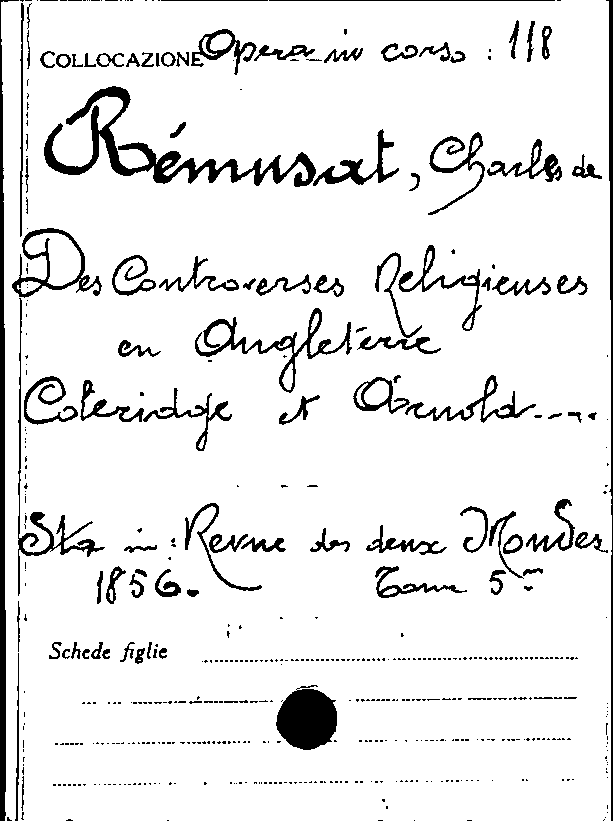 COLLOCAZIONE Opera in corso : 118
Rémusat, Charles de
Des Controverses Religieuses
en Angleterre
Coleridge et Arnold....
Sta in : Revue des deux Mondes
1856. Tome 5me
Schede figlie